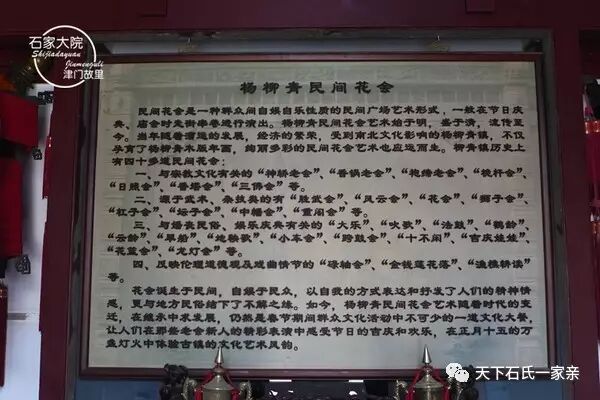 石家大院
Shijiadayuan
Jinmenguli
津门故里
杨柳青民间花会
民间花会是一种群众间自娱自乐性质的民间广场艺术形式，一般在节日庆
典、庙会时走街串巷进行演出。杨柳青民间花会艺术始于明，盛于清，流传至
今。当年随着漕运的发展，经济的繁荣，受到南北文化影响的杨柳青镇，不仅
孕育了杨柳青木版年画，绚丽多彩的民间花会艺术也应运而生。柳青镇历史上
有四十多道民间花会：
一、与宗教文化有关的“神轿老会”、“香锅老会”、“袍绣老会”、“桅杆会”、
“日照会”、“香塔会”、“三佛会”等。
二、源于武术、杂技类的有“胜武会”、“风云会”、“花会”、“狮子会”、
“杠子会”、“坛子会”、“中幡会”、“重阁会”等。
三、与婚丧民俗、娱乐庆典有关的“大乐”、“吹歌”、“法鼓”、“鹤龄”、
“云龄”、“旱船”、“地秧歌”、“小车会”、“跨鼓会”、“十不闲”、“吉庆娃娃”、
“花篮会”、“龙灯会”等。
四、反映伦理道德观及戏曲情节的“碌轴会”、“金钱莲花落”、“渔樵耕读”
等。
花会诞生于民间，自娱于民众，以自我的方式表达和抒发了人们的精神情
感，更与地方民俗结下了不解之缘。如今，杨柳青民间花会艺术随着时代的变
迁，在继承中求发展，仍然是春节期间群众文化活动中不可少的一道文化大餐，
让人们在那些老会新人的精彩表演中感受节日的吉庆和欢乐，在正月十五的万
盏灯火中体验古镇的文化艺术风韵。
天下石氏一家亲